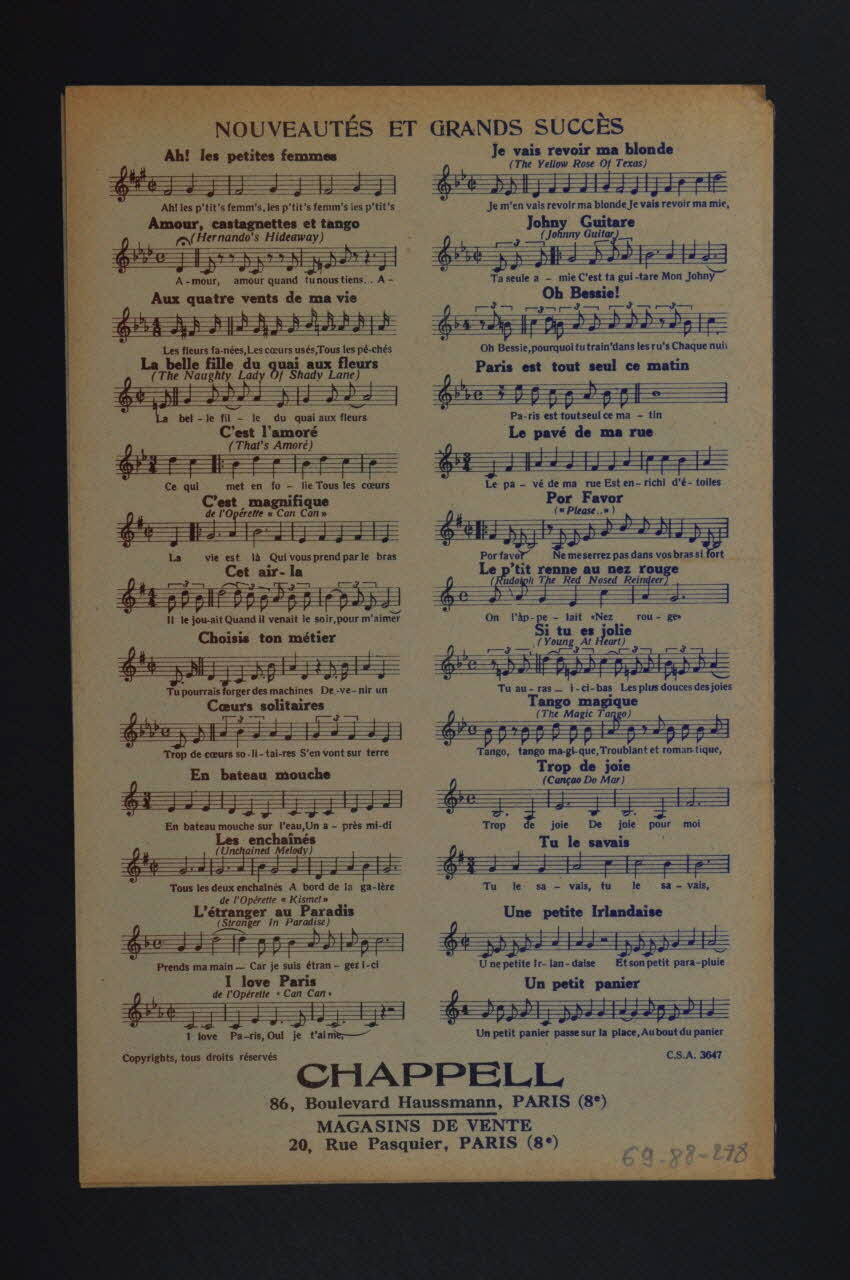 NOUVEAUTÉS ET GRANDS SUCCÈS
Ah! les petites femmes
Ah! les p'tit's femm's, les p'tit's femm's les p'tit's
Amour, castagnettes et tango
(Hernando's Hideaway)
A-mour, amour quand tu nous tiens... A-
Aux quatre vents de ma vie
Les fleurs fa-nées, Les cœurs usés, Tous les pé-chés
La belle fille du quai aux fleurs
(The Naughty Lady Of Shady Lane)
La bel-le fil-le du quai aux fleurs
C'est l'amoré
(That's Amoré)
Ce qui met en fo-lie Tous les cœurs
C'est magnifique
de l'Opérette « Can Can »
La vie est là Qui vous prend par le bras
Cet air-la
Il le jou-ait Quand il venait le soir, pour m'aimer
Choisis ton métier
Tu pourrais forger des machines De-ve-nir un
Cœurs solitaires
Trop de cœurs so-li-tai-res S'en vont sur terre
En bateau mouche
En bateau mouche sur l'eau, Un a-près mi-di
Les enchaînés
(Unchained Melody)
Tous les deux enchaînés A bord de la ga-lère
de l'Opérette « Kismet »
L'étranger au Paradis
(Stranger In Paradise)
Prends ma main — Car je suis étran-ger i-ci
I love Paris
de l'Opérette « Can Can »
I love Pa-ris, Oui je t'aime,
Je vais revoir ma blonde
(The Yellow Rose Of Texas)
Je m'en vais revoir ma blonde, Je vais revoir ma mie,
Johny Guitare
(Johnny Guitar)
Ta seule a-mie C'est ta gui-tare Mon Johny
Oh Bessie!
Oh Bessie, pourquoi tu train' dans les ru's Chaque nuit
Paris est tout seul ce matin
Pa-ris est tout seul ce ma-tin
Le pavé de ma rue
Le pa-vé de ma rue Est en-richi d'é-toiles
Por Favor
(« Please.. »)
Por favor Ne me serrez pas dans vos bras si fort
Le p'tit renne au nez rouge
(Rudolph The Red Nosed Reindeer)
On l'ap-pe-lait «Nez rou-ge»
Si tu es jolie
(Young At Heart)
Tu au-ras — i-ci-bas Les plus douces des joies
Tango magique
(The Magic Tango)
Tango, tango ma-gi-que, Troublant et roman-tique,
Trop de joie
(Cançao Do Mar)
Trop de joie De joie pour moi
Tu le savais
Tu le sa-vais, tu le sa-vais,
Une petite Irlandaise
U ne petite Ir-lan-daise Et son petit para-pluie
Un petit panier
Un petit panier passe sur la place, Au bout du panier
Copyrights, tous droits réservés
C.S.A. 3647
CHAPPELL
86, Boulevard Haussmann, PARIS (8e)
MAGASINS DE VENTE
20, Rue Pasquier, PARIS (8e)
69-88-278